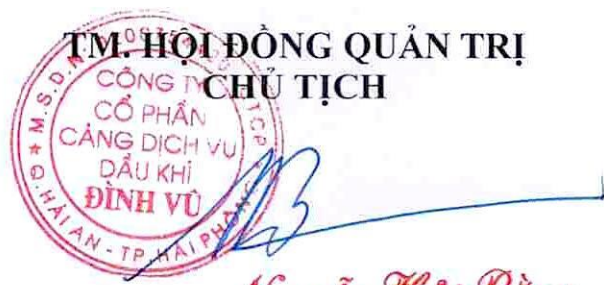 TM. HỘI ĐỒNG QUẢN TRỊ
CHỦ TỊCH
CÔNG TY
CỔ PHẦN
CẢNG DỊCH VỤ
DẦU KHÍ
ĐÌNH VŨ
Q. HẢI AN - TP. HẢI PHÒNG
M.S.D.N